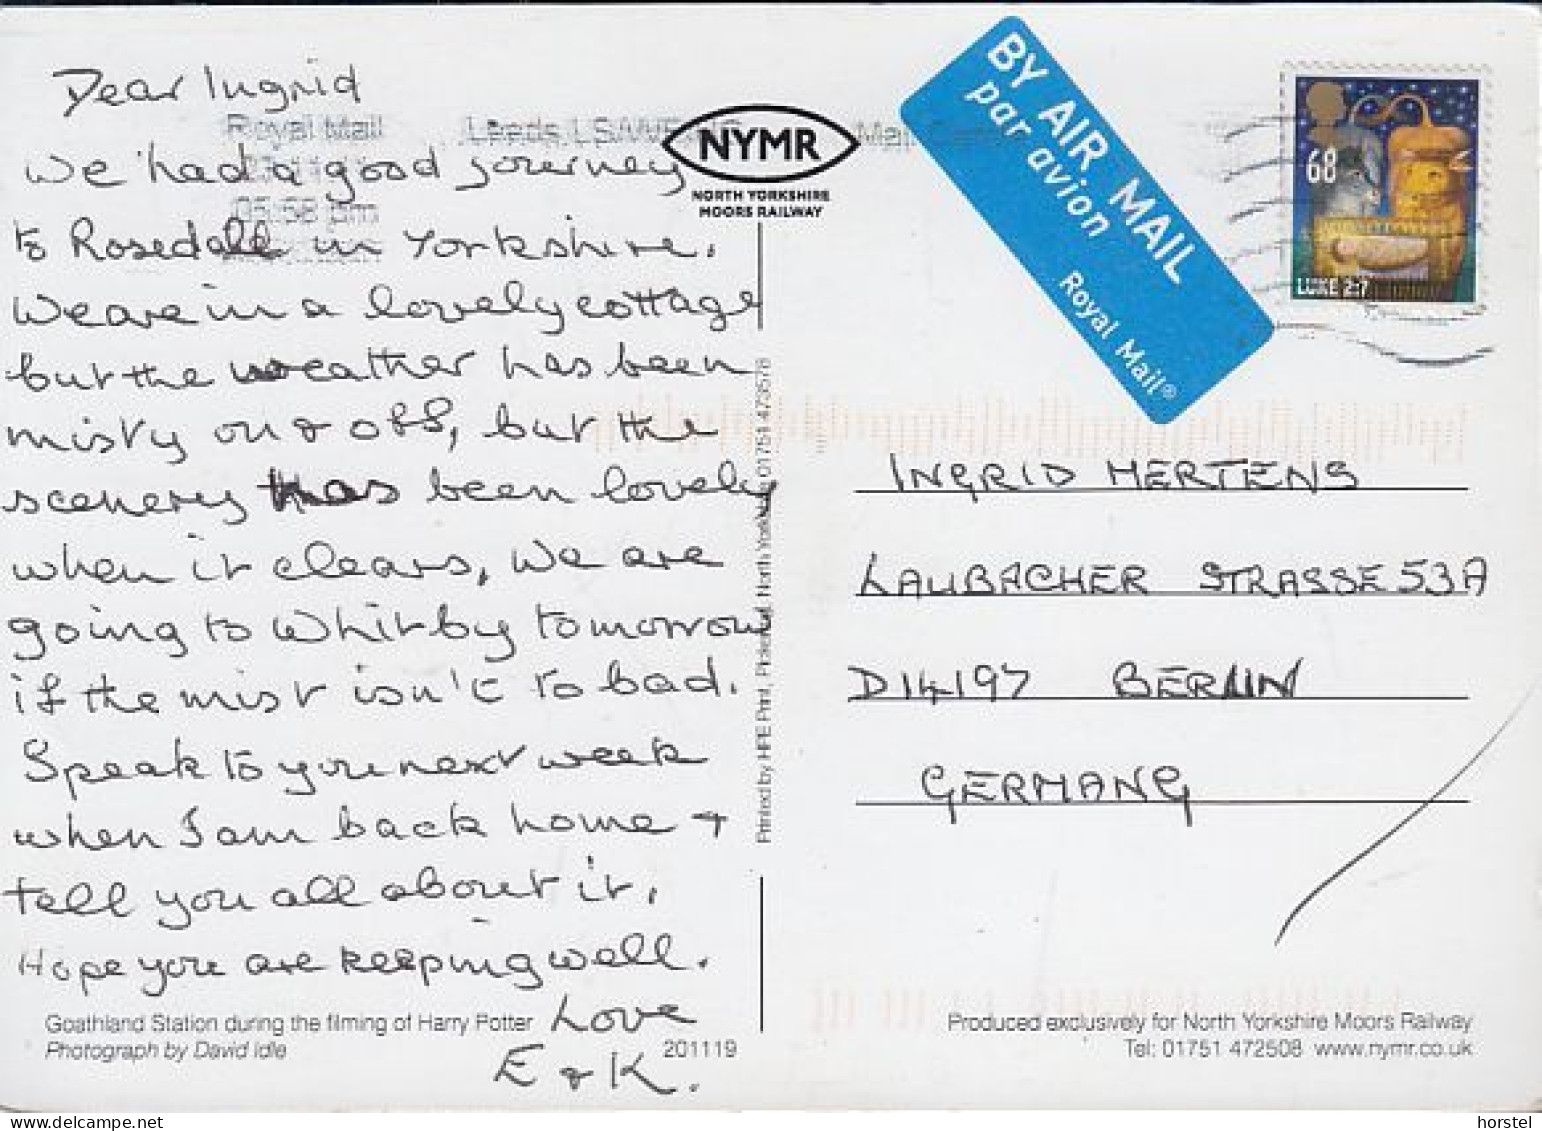 Dear Ingrid
We had a good journey
to Rosedale in Yorkshire.
We are in a lovely cottage
but the weather has been
misty on & off, but the
scenery has been lovely
when it clears, We are
going to Whitby tomorrow
if the mist isn't to bad.
Speak to you next week
when I am back home +
tell you all about it.
Hope you are keeping well.
Love
E & K.
Goathland Station during the filming of Harry Potter
Photograph by David Idle
201119
Royal Mail
Leeds LS/WF
05:58 pm
NYMR
NORTH YORKSHIRE
MOORS RAILWAY
Printed by HPE Print, Pickering, North Yorkshire 01751 473578
BY AIR MAIL
par avion
Royal Mail®
68
LUKE 2:7
INGRID MERTENS
LAUBACHER STRASSE 53A
D14197 BERLIN
GERMANY
Produced exclusively for North Yorkshire Moors Railway
Tel: 01751 472508 www.nymr.co.uk
horstel